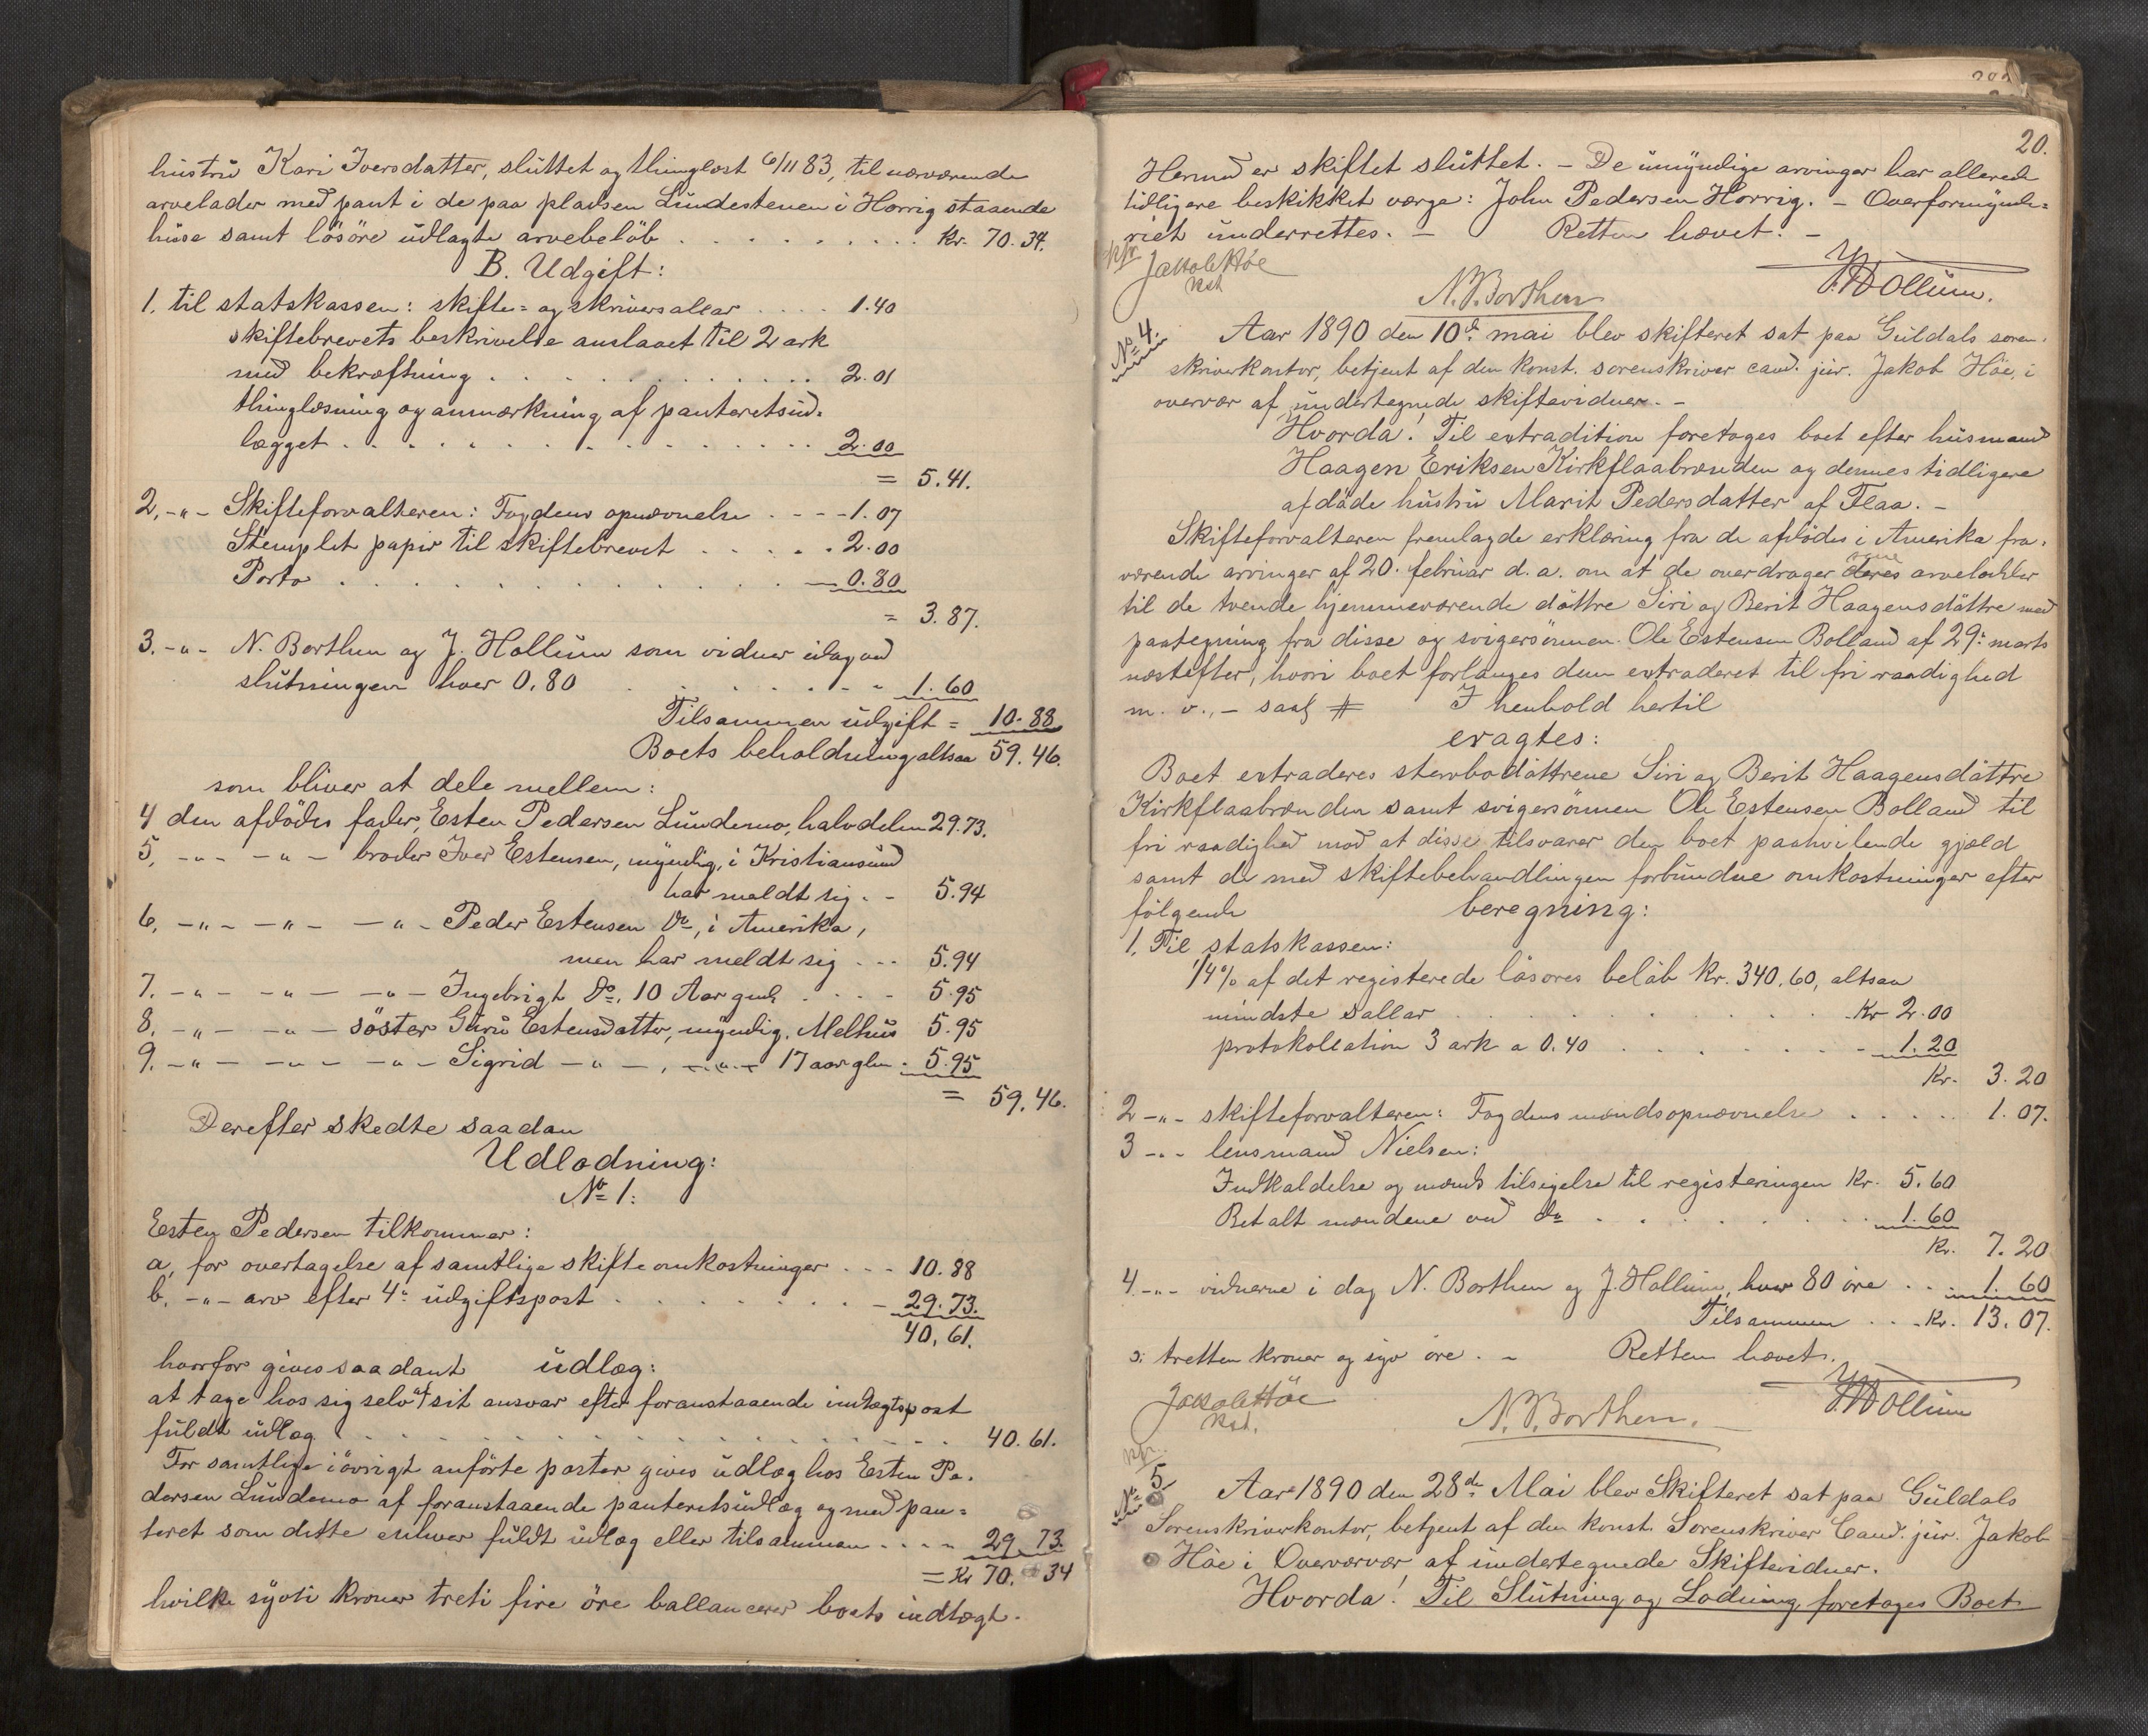 hustru Kari Iversdatter, sluttet og thinglæst 6/11 83, til nærværende
arvelader med pant i de paa pladsen Lundestenen i Horrig staaende
huse samt lösöre udlagte arvebelöb . . . . . . . . . Kr. 70.34.
B. Udgift:
1. til statskassen: skifte- og skriversallar . . . . 1.40
skiftebrevets beskrivelse anslaaet til 2 ark
med bekræftning . . . . . . . . . . . . 2.01
thinglæsning og anmærkning af panteretsud-
lægget . . . . . . . . . . . . . . . 2.00
= 5.41.
2, -"- Skifteforvalteren: Fogdens opnævnelse . - - - 1.07
Stemplet papir til skiftebrevet . . . . . 2.00
Porto . . . . . . . . . . . . . . 0.80
= 3.87.
3. -"- N. Borthen og J. Hollum som vidner idag ved
slutningen hver 0.80 . . . . . . . 1.60
Tilsammen udgift = 10.88
Boets beholdning altsaa 59.46.
som bliver at dele mellem:
4 den afdödes fader, Esten Pedersen Lundemo, halvdelen 29.73.
5, -"- -"- broder Iver Estensen, myndig, i Kristiansund
har meldt sig . - 5.94
6, -"- -"- -"- Peder Estensen do, i Amerika,
men har meldt sig . . . 5.94
7. -"- -"- -"- Ingebrigt do. 10 Aar gml. . . . . 5.95
8. -"- -"- söster Guru Estensdatter, myndig. Melhus 5.95
9. -"- -"- -"- Sigrid -"-, -"- 17 aar glm . 5.95
= 59.46.
Derefter skedte saadan
Udlodning:
No 1:
Esten Pedersen tilkommer:
a, for overtagelse af samtlige skifteomkostninger . . . 10.88
b. -"- arv efter 4de udgiftspost . . . . . . . . 29.73.
40.61.
hvorfor gives saadant udlæg:
at tage hos sig selv af sit ansvar efter foranstaaende indtægtspost
fuldt udlæg . . . . . . . . . . . . . . . . . . . . 40.61.
For samtlige iövrigt anförte poster gives udlæg hos Esten Pe-
dersen Lundemo af foranstaaende panteretsudlæg og med pan-
teret som dette enhver fuldt udlæg eller tilsammen . . . . 29.73.
= Kr 70.34
hvilke sytti kroner treti fire öre ballancerer boets indtægt.
20.
Hermed er skiftet sluttet. - De umyndige arvinger har allerede
tidligere beskikket værge: John Pedersen Horrig. - Overformynde-
riet underrettes. - Retten hævet. -
Jakob Höe
kst
N. P. Borthen
J. Hollum.
No 4.
Aar 1890 den 10de mai blev skifteret sat paa Guldals soren-
skriverkontor, betjent af den konst. sorenskriver cand. jur. Jakob Höe, i
overvær af undertegnede skiftevidner. -
Hvorda! Til extradition foretages boet efter husmand
Haagen Eriksen Kirkflaabrænden og dennes tidligere
afdöde hustru Marit Pedersdatter af Flaa. -
Skifteforvalteren fremlagde erklæring fra de afdödes i Amerika fra-
værende arvinger af 20. februar d. a. om at de overdrager deres sine arvelodder
til de tvende hjemmeværende döttre Siri og Berit Haagensdöttre med
paategning fra disse og svigersönnen Ole Estensen Bolland af 29de marts
næstefter, hvori boet forlanges dem extraderet til fri raadighed
m. v., - saal # I henhold hertil
eragtes:
Boet extraderes stervbodöttrene Siri og Berit Haagensdöttre
Kirkflaabrænden samt svigersönnen Ole Estensen Bolland til
fri raadighed mod at disse tilsvarer den boet paahvilende gjæld
samt de med skiftebehandlingen forbundne omkostninger efter
fölgende beregning:
1, Til statskassen:
1/4% af det registerede lösöres belöb Kr. 340.60, altsaa
mindste sallar . . . . . . . . . . . . Kr 2.00
protokollation 3 ark a 0.40 . . . . . . . - 1.20
Kr. 3.20
2 -"- skifteforvalteren: Fogdens mændsopnævnelse . . . . . 1.07.
3 -"- lensmand Nielsen:
Indkaldelse og mænds tilsigelse til registeringen Kr. 5.60
Betalt mændene ved do . . . . . . . . . 1.60
Kr. 7.20
4 -"- vidnerne i dag N. Borthen og J. Hollum, hver 80 öre . . . 1.60
Tilsammen . . . Kr. 13.07.
ɔ: tretten kroner og syv öre . - Retten hævet.
Jakob Höe
Kst.
N. P. Borthen.
J. Hollum
No 5
Aar 1890 den 28de Mai blev Skifteret sat paa Guldals
Sorenskriverkontor, betjent af den konst. Sorenskriver Cand. jur. Jakob
Höe i Overværvær af undertegnede Skiftevidner.
Hvorda! Til Slutning og Lodning foretages Boet